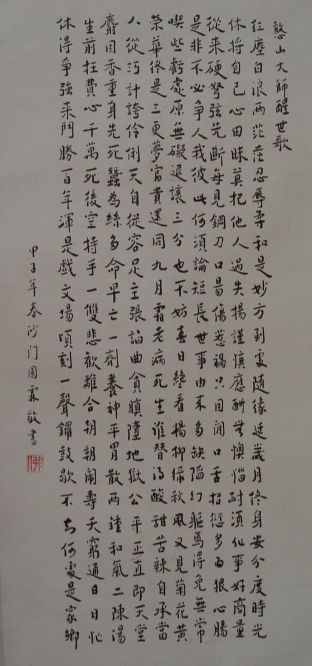 憨山大師醒世歌
紅塵白浪兩茫茫忍辱柔和是妙方到處隨緣延歲月終身安分度時光
休將自己心田昧莫把他人過失揚謹慎應酬無懊惱耐煩作事好商量
從來硬弩弦先斷每見鋼刀口易傷惹禍只因閒口舌招愆多為狠心腸
是非不必爭人我彼此何須論短長世事由來多缺陷幻軀焉得免無常
喫些虧處原無礙退讓三分也不妨春日纔看楊柳綠秋風又見菊花黃
榮華終是三更夢富貴還同九月霜老病死生誰替得酸甜苦辣自承當
人從巧計誇伶俐天自從容定主張諂曲貪瞋墮地獄公平正直即天堂
麝因香重身先死蠶為絲多命早亡一劑養神平胃散兩鍾和氣二陳湯
生前枉費心千萬死後空持手一雙悲歡離合朝朝鬧壽夭窮通日日忙
休得爭強來鬥勝百年渾是戲文場頃刻一聲鑼鼓歇不知何處是家鄉
甲子年春沙门因霖敬書
佛